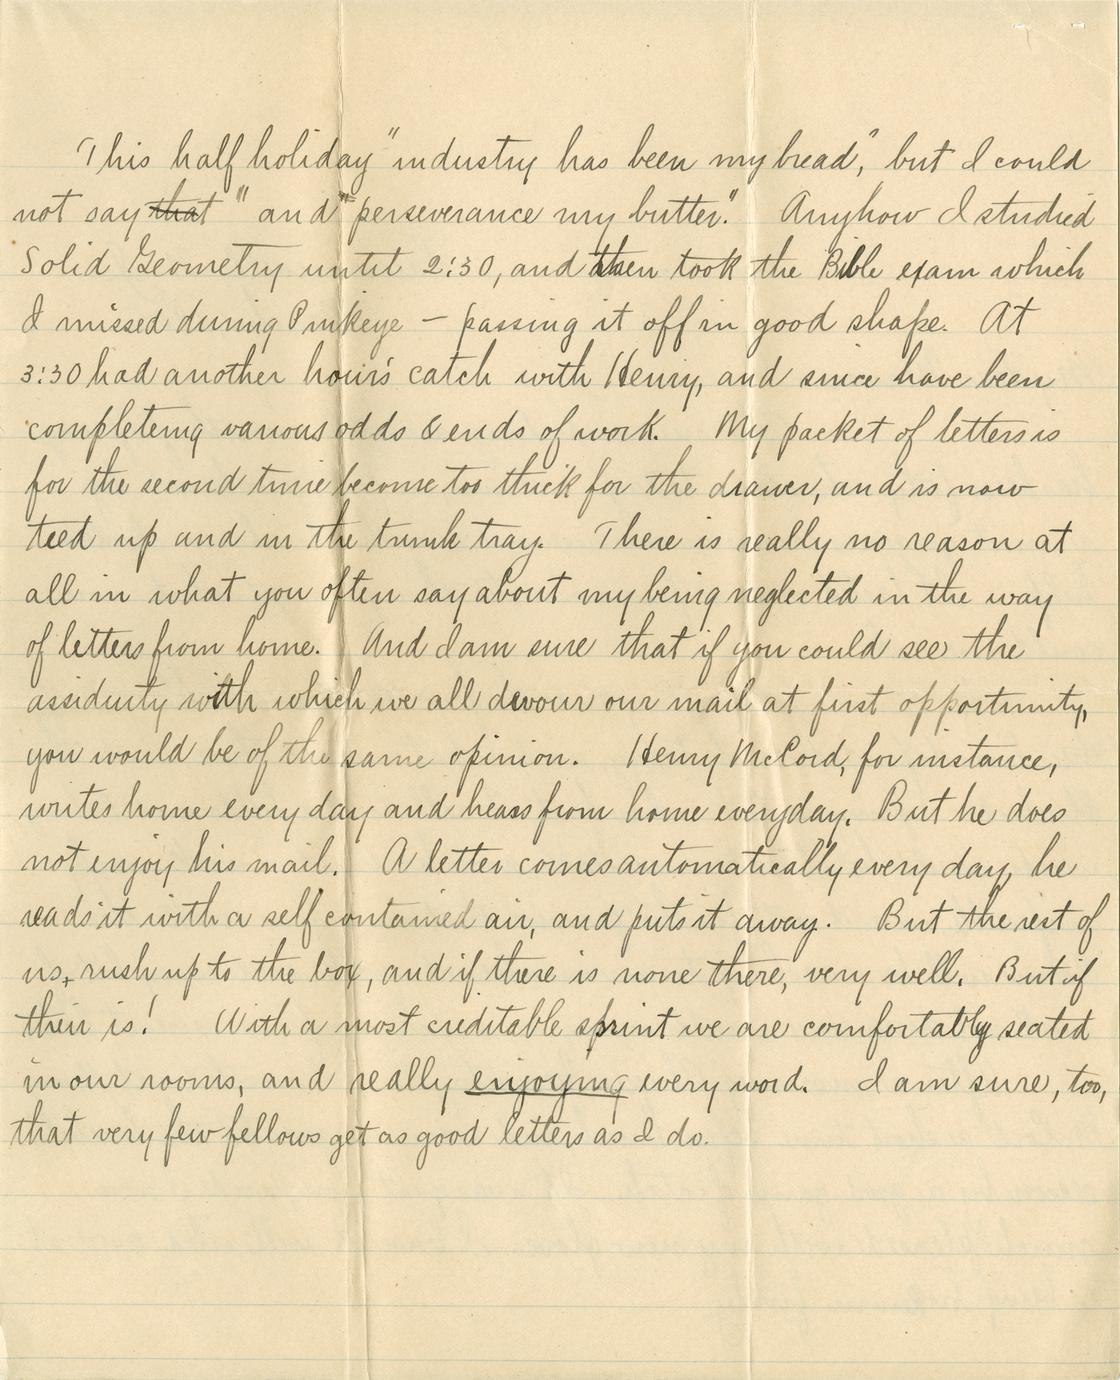 This half holiday "industry has been my bread", but I could
not say that " and "perseverance my butter." Anyhow I studied
Solid Geometry until 2:30, and then took the Bible exam which
I missed during Pinkeye — passing it off in good shape. At
3:30 had another hour's catch with Henry, and since have been
completeing various odds & ends of work. My packet of letters is
for the second time become too thick for the drawer, and is now
tied up and in the trunk tray. There is really no reason at
all in what you often say about my being neglected in the way
of letters from home. And I am sure that if you could see the
assiduity with which we all devour our mail at first opportunity,
you would be of the same opinion. Henry McCord, for instance,
writes home every day and hears from home everyday. But he does
not enjoy his mail. A letter comes automatically every day, he
reads it with a self contained air, and puts it away. But the rest of
us, rush up to the box, and if there is none there, very well. But if
their is! With a most creditable sprint we are comfortably seated
in our rooms, and really enjoying every word. I am sure, too,
that very few fellows get as good letters as I do.